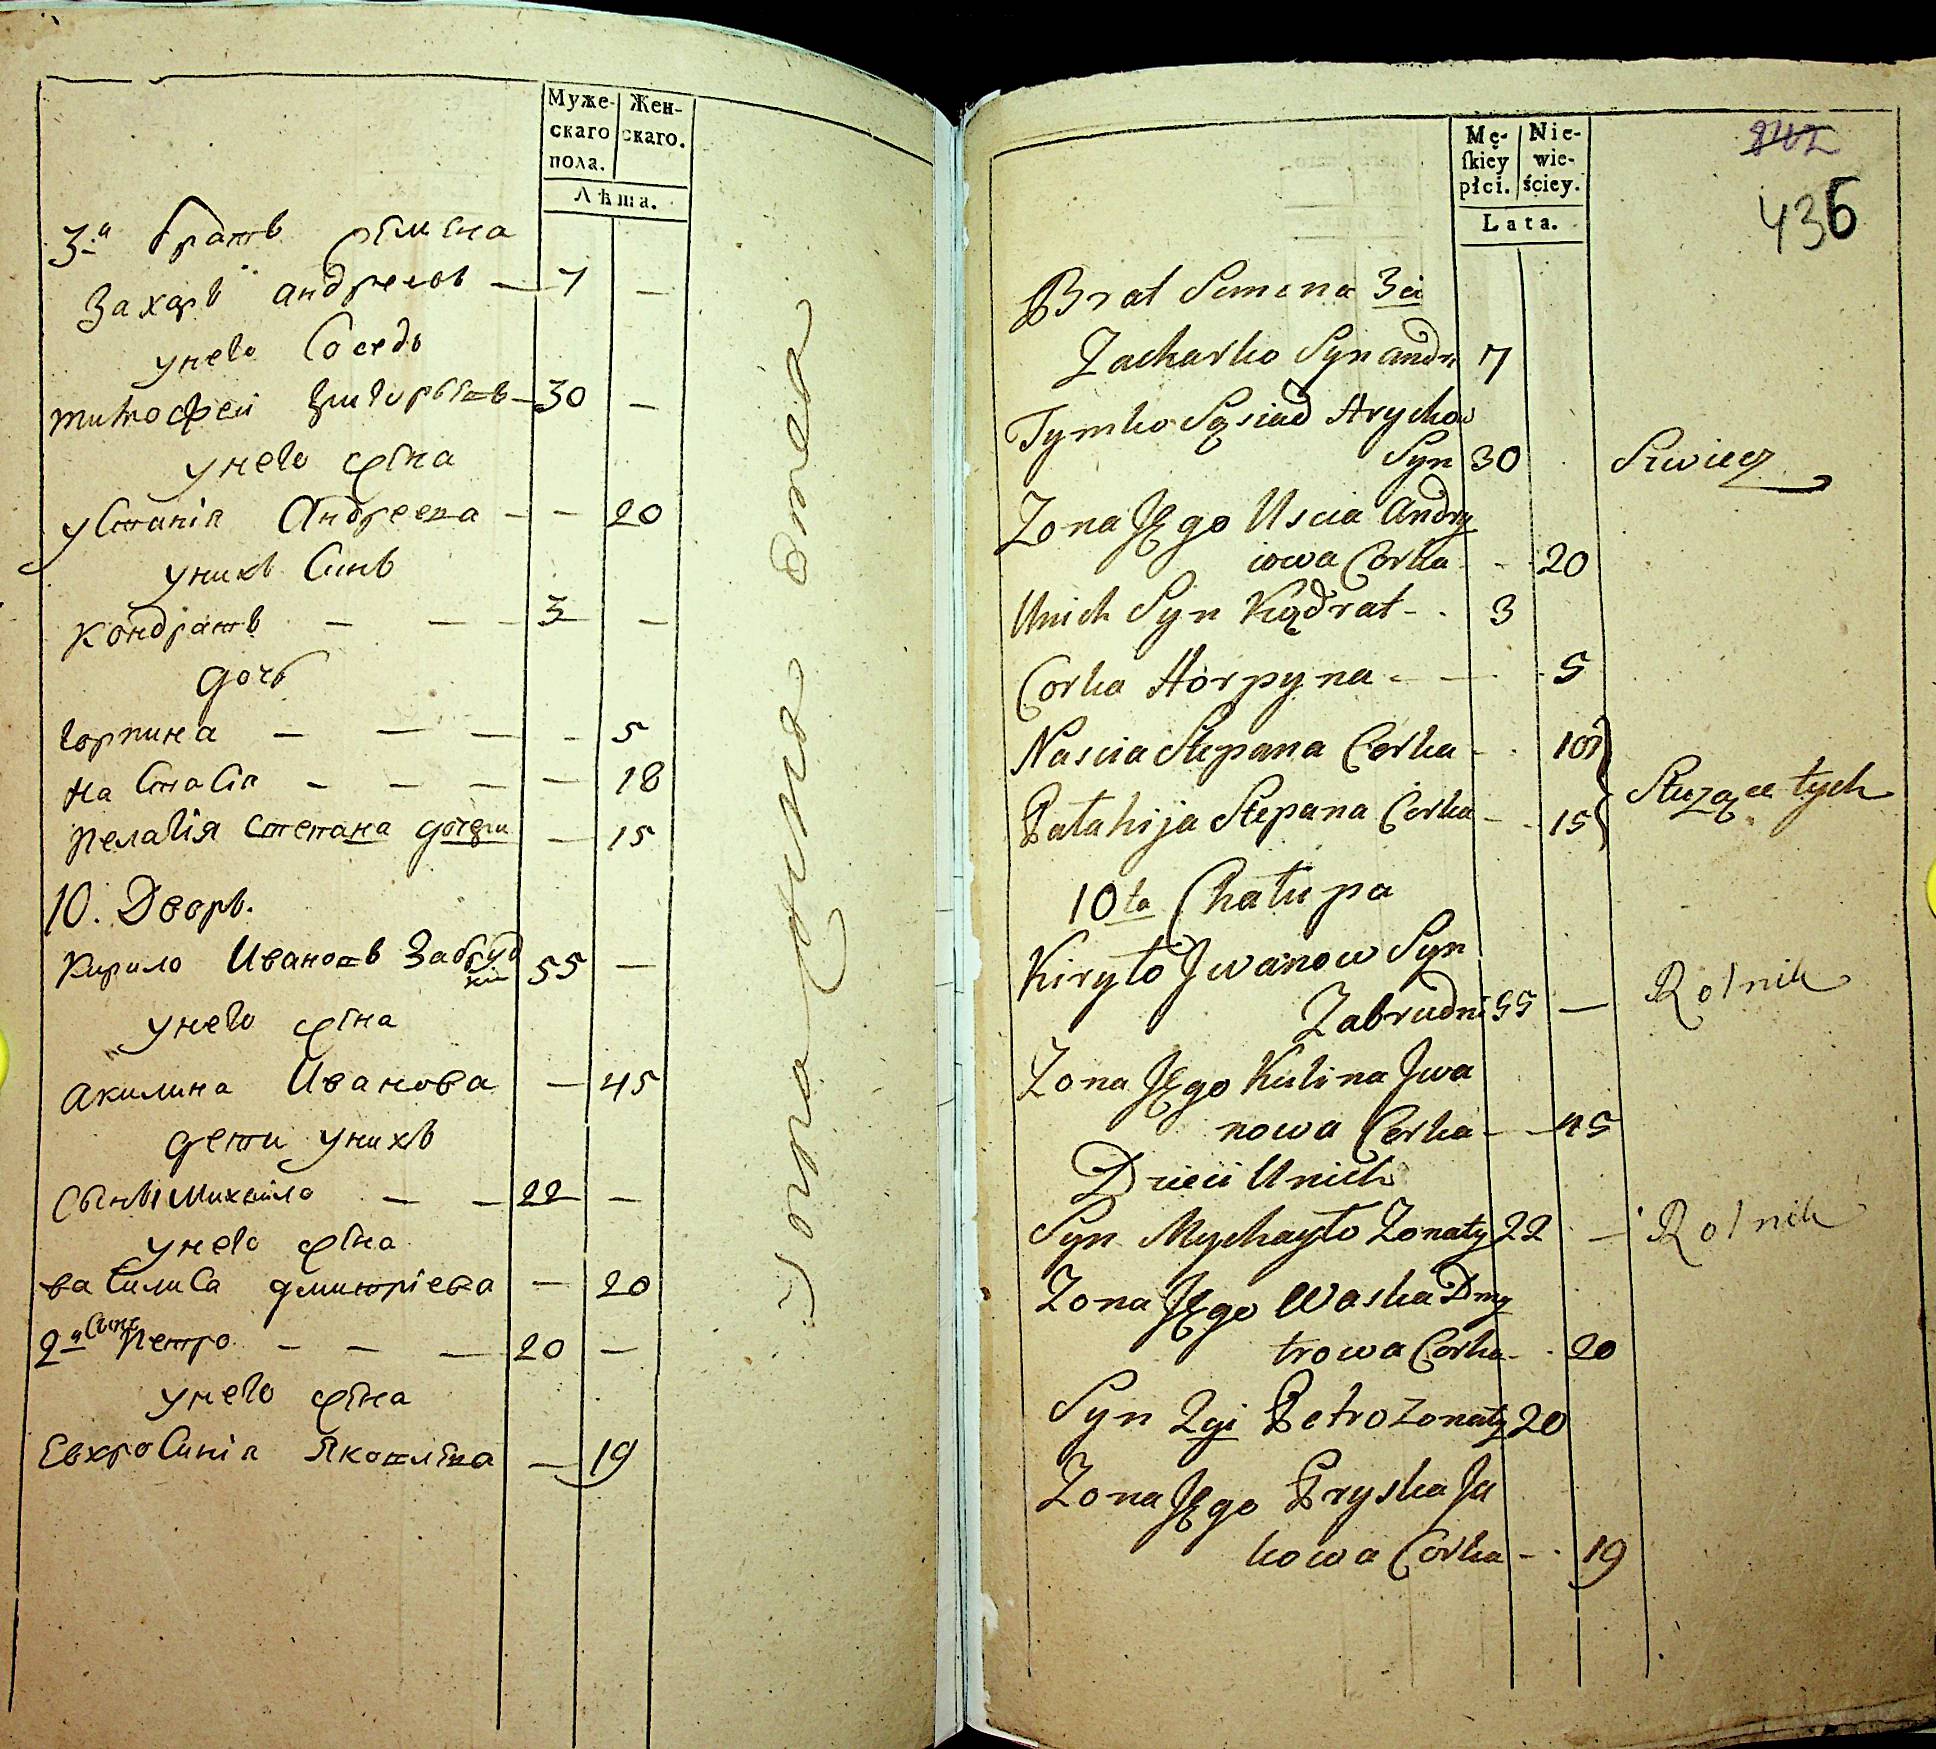 Муже-
скаго
пола.
Жен-
скаго.
Лѣта.
3й братъ Семена
Захаръ андреевъ — 7 —
унего Соседъ
тимофей григорьевъ — 30 —
унего жена
устинія Андреева — — 20
унихъ Синъ
Кондратъ — — — 3 —
дочъ
горпина — — — — 5
на стасія — — — — 18
пелагія степана дочери — 15
10. Дворъ.
Кирило Ивановъ Забруд
ній 55 —
унего жена
Акилина Иванова — 45
дети унихъ
Сынъ 1 Михайло — — 22 —
унего жена
василиса дмитріева — 20
2й Синъ Петро — — — 20 —
унего жена
Евхросинія Яковлева — 19
Mę-
skiey
płci.
Nie-
wie-
ściey.
Lata.
436
Brat Semena 3ci
Zacharko Syn andr 7
Tymko Sąsiad Hrychow
Syn 30 Szwiec
Zona Jego Uscia Andry
iowa Corka - - 20
Unich Syn Kądrat - - 3
Corka Horpyna - — - 5
Nascia Stepana Corka - -
Patahija Stepana Corka - - 15 Służące tych
10ta Chałupa
Kiryło Jwanow Syn
Zabrudni 55 — Rolnik
Zona Jego Kulina Jwa
nowa Corka — — 45
Dzieci Unich
Syn Mychayło Zonaty 22 — Rolnik
Zona Jego Waska Dmy
trowa Corka - - 20
Syn 2gi Petro Zonaty 20
Zona Jego Pryska Ja
kowa Corka - - 19